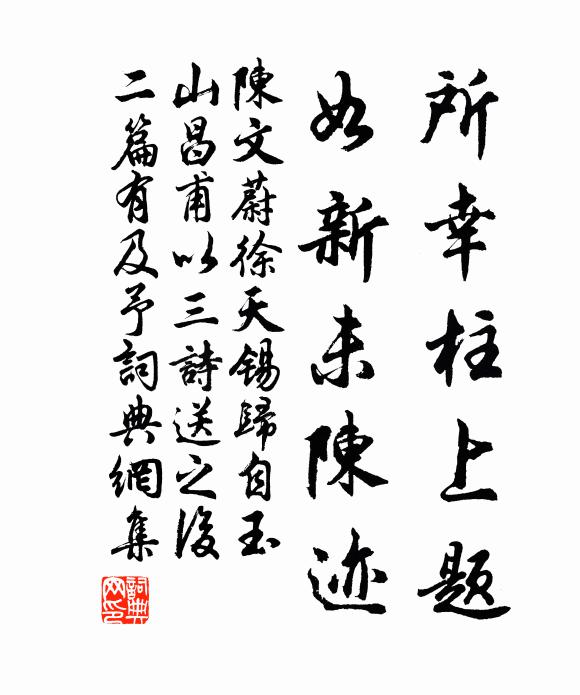 所幸柱上题
如新未陳迹
陳文蔚徐天錫歸自玉
山昌甫以三詩送之後
二篇有及予詞典網集
詞典网印